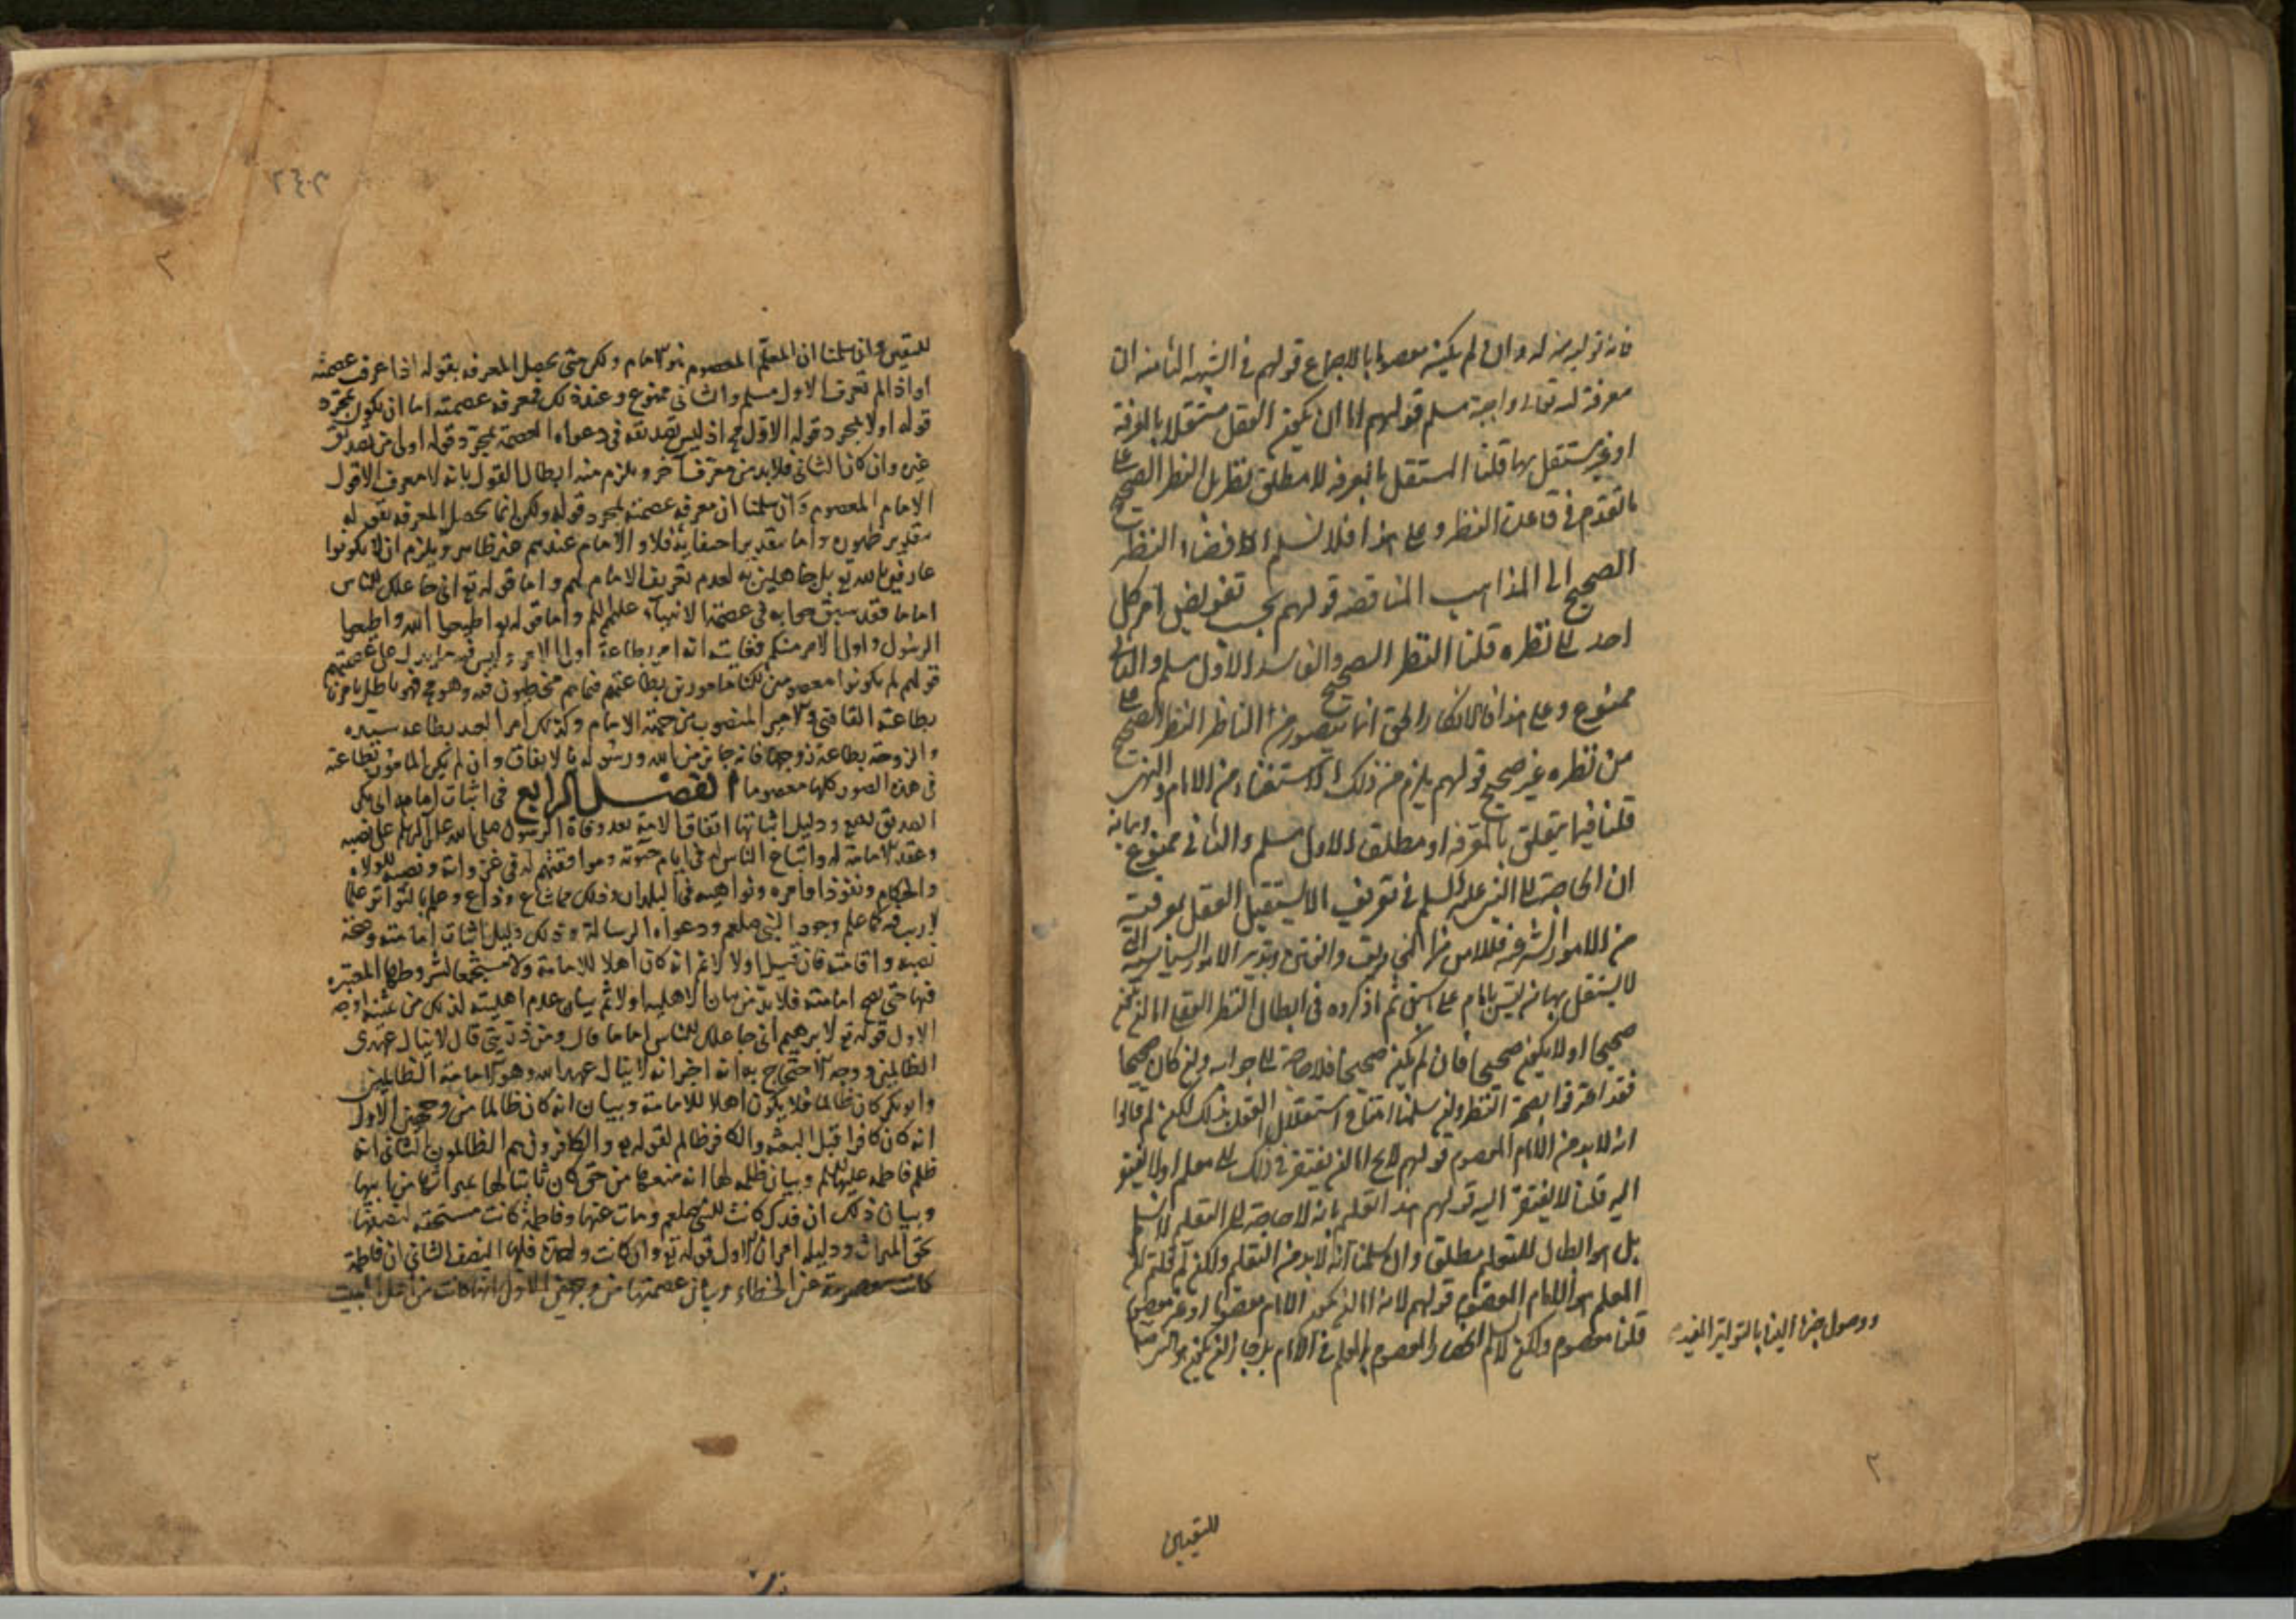 فانه توليه منه له وان لم يكن معصوما بالاجماع قولهم في الشبهة الثامنة ان
معرفة الله تعالى واجبة مسلم قولهم اما ان يكون العقل مستقلا بالمعرفة
او غير مستقل بها قلنا المستقل بالمعرفة لا مطلق نظر بل النظر الصحيح على
ما تقدم في قاعدة النظر وعلى هذا فلا نسلم افضاء النظر
الصحيح الى المذاهب المتناقضة قولهم يجب تفويض امر كل
احد الى نظره قلنا النظر الصحيح او الفاسد الاول مسلم والثاني
ممنوع وعلى هذا فالانكار الحق انما يتصور من الناظر النظر الصحيح على
من نظره غير صحيح قولهم يلزم من ذلك الاستغناء عن الامام والنبي
قلنا فيما يتعلق بالمعرفة او مطلقا الاول مسلم والثاني ممنوع وبيانه
ان الحاجة الى النبي عليه السلم في تعريف ما لا يستقل العقل بمعرفته
من الامور الشرعية فللامن من التخويف والفتن وتدبير الامور السياسية التي
لا يستقل بها من ليس بامام على ما سبق ثم ما ذكروه في ابطال النظر العقلي اما ان يكون
صحيحا او لا يكون صحيحا فان لم يكن صحيحا فلا حاجة الى جوابه وان كان صحيحا
فقد اعترفوا بصحة النظر ولئن سلمنا امتناع استقلال العقل بذلك لكن لم قالوا
انه لا بد من الامام المعصوم قولهم لانه اما ان يفتقر في ذلك الى معلم او لا يفتقر
اليه قلنا لا يفتقر اليه قولهم هذا تعليم بانه لا حاجة الى التعليم لا نسلم
بل هو ابطال للتعليم مطلقا وان سلمنا انه لا بد من التعليم ولكن لم قلتم ان
المعلم هو الامام المعصوم قولهم لانه اما ان يكون الامام معصوما او غير معصوم
قلنا معصوم ولكن لا نسلم انحصار المعصوم المعلم في الامام بل جاز ان يكون هو الرسول
ووصول خبره الينا بالتواتر المفيد
للتيقين
للتيقين وان سلمنا ان المعلم المعصوم هو الامام ولكن متى يحصل المعرفة بقوله اذا عرف عصمته
او اذا لم تعرف الاول مسلم والثاني ممنوع وعند ذلك فمعرفة عصمته اما ان يكون بمجرد
قوله او لا بمجرد قوله الاول مح اذ ليس تصديقه في دعواه العصمة بمجرد قوله اولى من تصديق
غيره وان كان الثاني فلا بد من معرف آخر ويلزم منه ابطال القول بانه لا معرف الا قول
الامام المعصوم وان سلمنا ان معرفة عصمته بمجرد قوله ولكن انما يحصل المعرفة بقوله
بتقدير ظهوره واما بتقدير اختفائه فلا والامام عندهم غير ظاهر ويلزم ان لا يكونوا
عارفين بالله تع بل جاهلين به لعدم تعريف الامام لهم واما قوله تع اني جاعلك للناس
اماما فقد سبق جوابه في عصمة الانبياء عليهم السلم واما قوله تع اطيعوا الله واطيعوا
الرسول واولي الامر منكم فغايته انه امر بطاعة اولي الامر وليس فيه ما يدل على عصمتهم
قولهم لو لم يكونوا معصومين لكنا مامورين بطاعتهم فيما هم مخطيون فيه وهو مح فهو باطل بامرنا
بطاعة القاضي والامير المنصوب من جهة الامام وكذلك امر العبد بطاعة سيده
والزوجة بطاعة زوجها فانه جايز من الله ورسوله بالاتفاق وان لم يكن المامور بطاعته
في هذه الصور كلها معصوما الفصل الرابع في اثبات امامة ابي بكر
الصديق رضي الله عنه ودليل اثباتها اتفاق الامة بعد وفاة الرسول صلى الله عليه وسلم على نصبه
وعقد الامامة له واتباع الناس له في ايام حيوته وموافقتهم له في غزواته ونصبه للولاة
والحكام ونفوذ اوامره ونواهيه في البلدان وذلك مما شاع وذاع وعلم بالتواتر علما
لا ريب فيه كما علم وجود النبي صلعم ودعواه الرسالة وذلك دليل اثبات امامته وصحة
نصبه واقامته فان قيل اولا لا نم انه كان اهلا للامامة ولا مستجمعا لشروطها المعتبرة
فيها حتى يصح امامته فلا بد من بيان الاهلية اولا ثم بيان عدم اهليته لذلك من عشرة اوجه
الاول قوله تع لابرهيم اني جاعلك للناس اماما قال ومن ذريتي قال لا ينال عهدي
الظالمين ووجه الاحتجاج به انه اخبر انه لا ينال عهد الله وهو الامامة الظالمين
وابو بكر كان ظالما فلا يكون اهلا للامامة وبيان انه كان ظالما من وجهين الاول
انه كان كافرا قبل البعثة والكافر ظالم لقوله تع والكافرون هم الظالمون الثاني انه
ظلم فاطمة عليها السلم وبيان ظلمه لها انه منعها من حق كان ثابتا لها ميراثا من ابيها
وبيان ذلك ان فدك كانت للنبي صلعم ومات عنها وفاطمة كانت مستحقة لنصفها
بحق الميراث ودليله امران الاول قوله تع وان كانت واحدة فلها النصف الثاني ان فاطمة
كانت معصومة عن الخطاء وبيان عصمتها من وجهين الاول انها كانت من اهل البيت